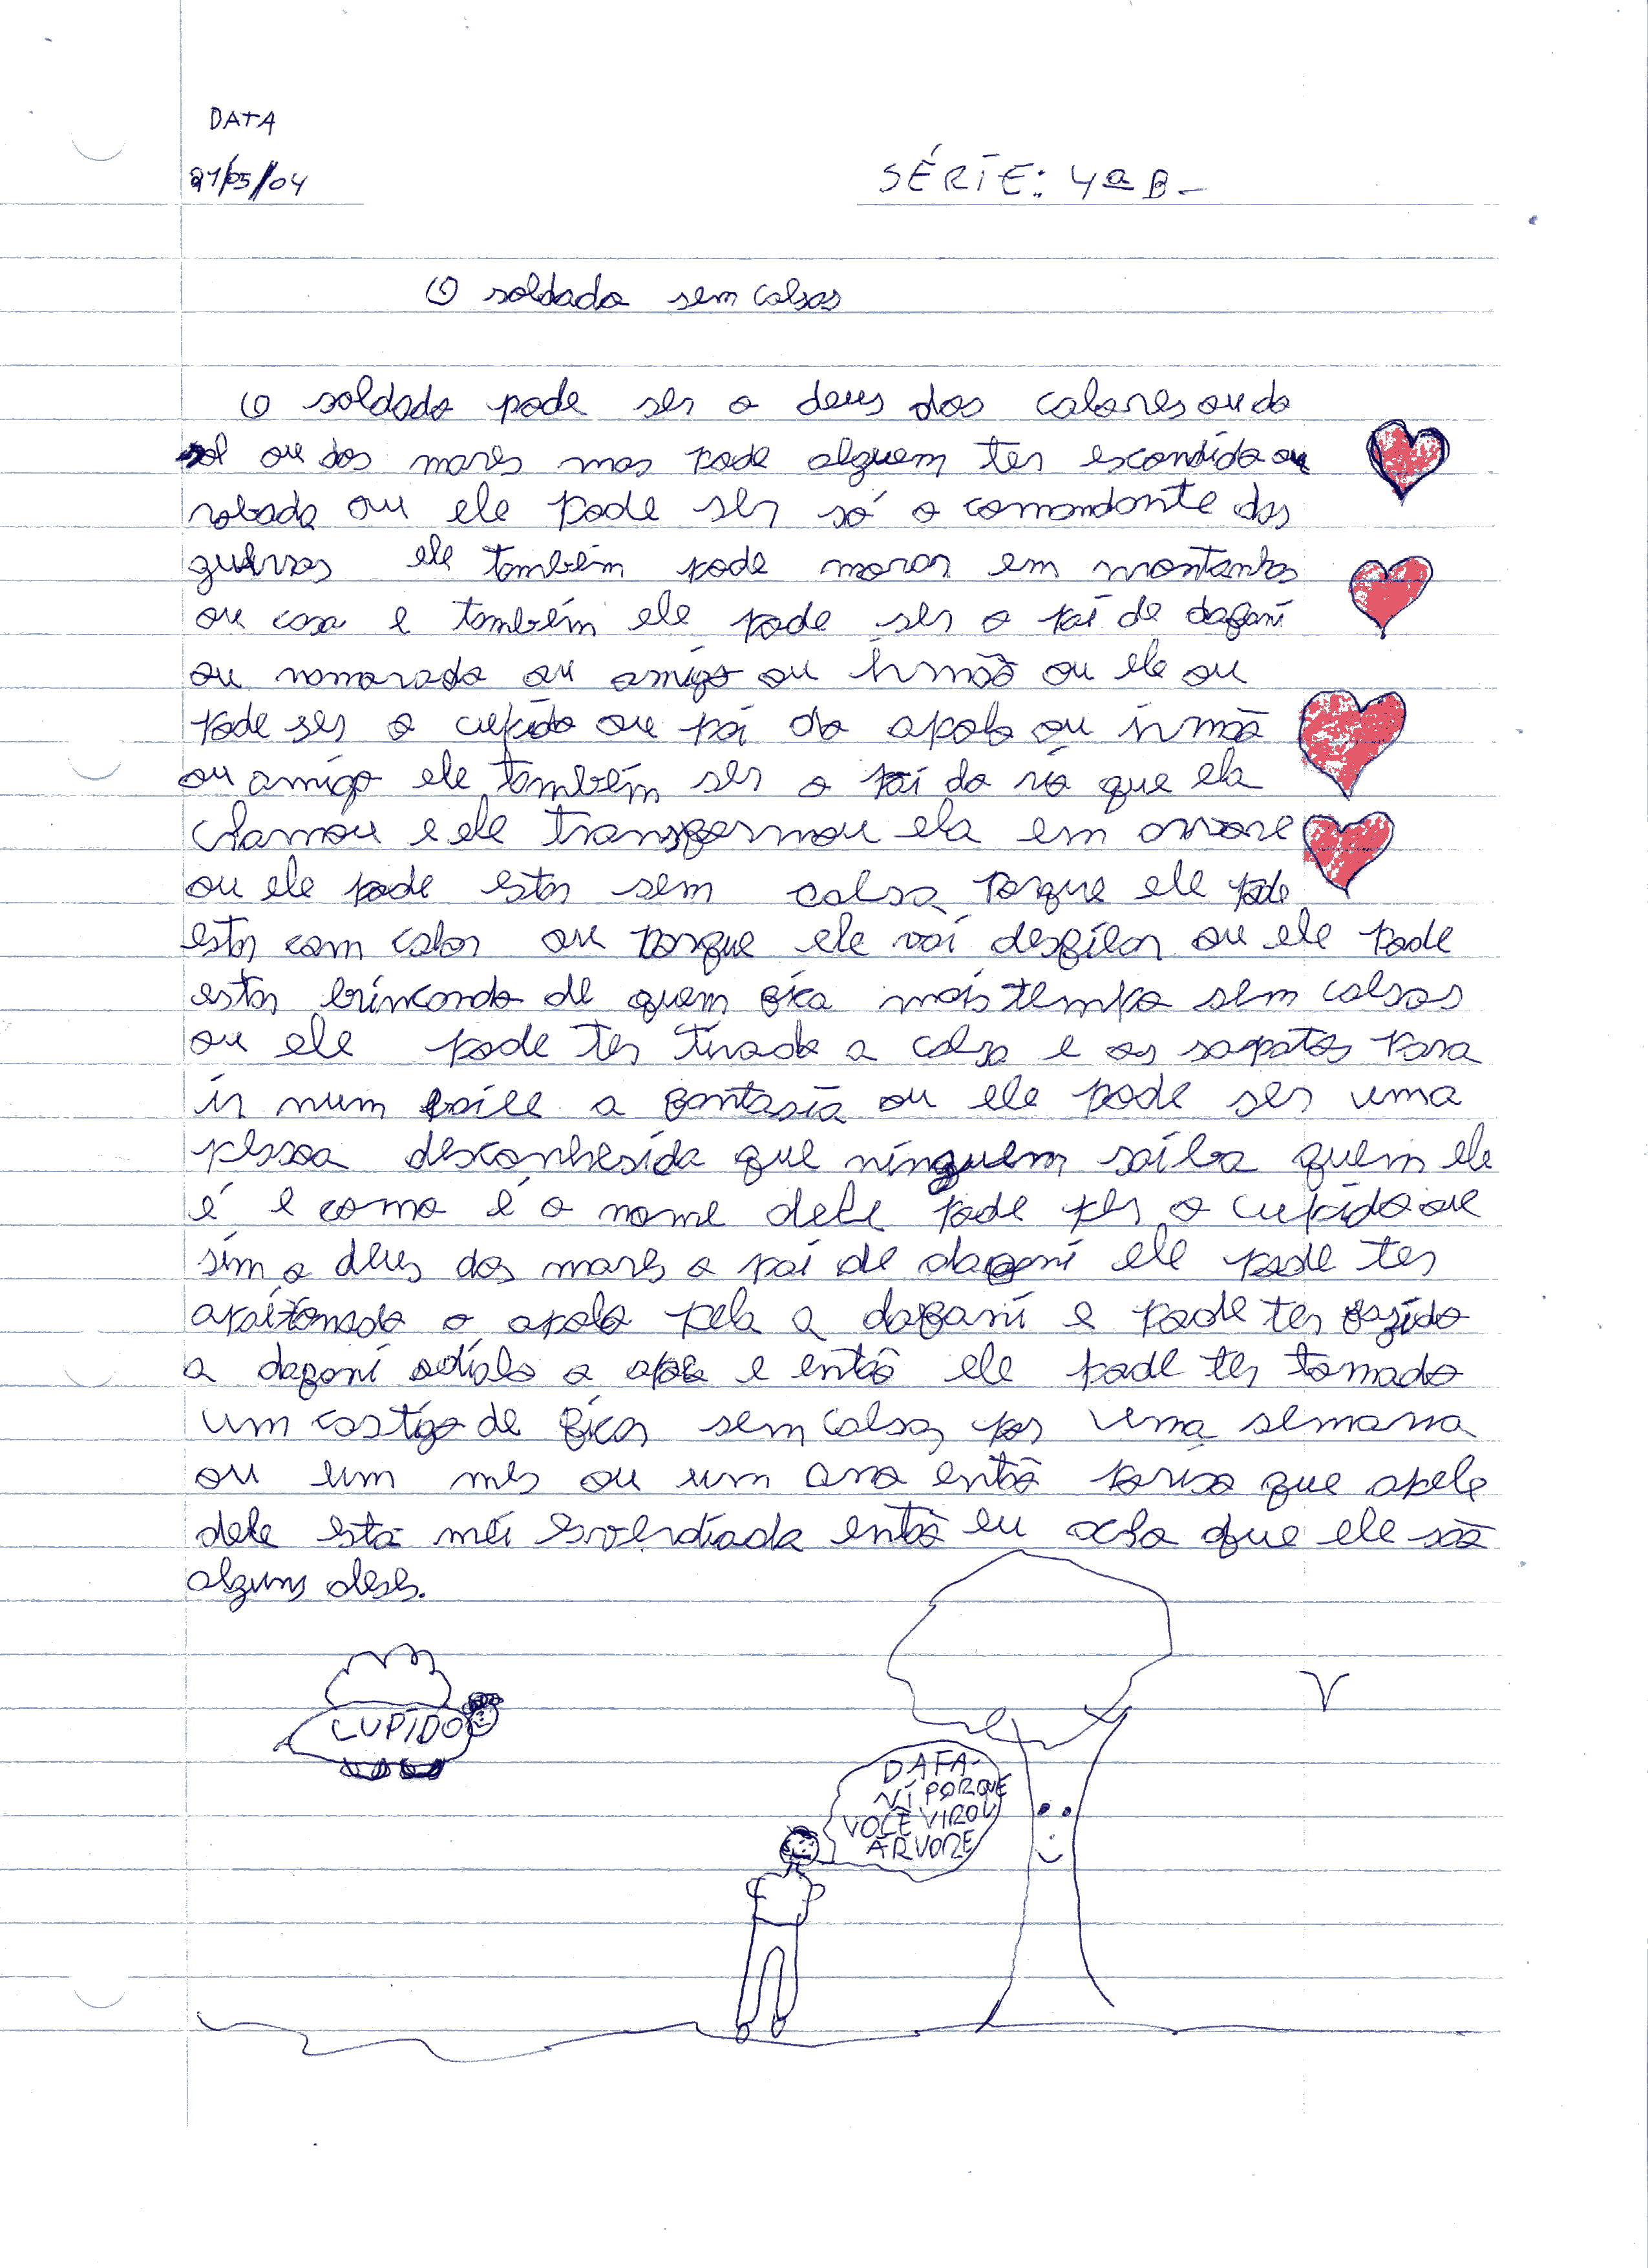 DATA
21/05/04
SÉRIE: 4ª B-
O soldado sem calsas
O soldado pode ser o deus dos calores ou do
sol ou dos mares mas pode alguem ter escondido ou
robado ou ele pode ser só o comandante das
guerras ele também pode morar em montanhas
ou casa e também ele pode ser o pai de dafani
ou namorado ou amigo ou irmão ou ele ou
pode ser o cupido ou pai do apolo ou irmão
ou amigo ele também ser o pai do rio que ela
chamou e ele transformou ela em arvore
ou ele pode estar sem calsa porque ele pode
estar com calor ou porque ele vai desfilar ou ele pode
estar brincando de quem fica mais tempo sem calsas
ou ele pode ter tirado a calsa e os sapatos para
ir num baile a fantasia ou ele pode ser uma
pessoa desconhesida que ninguem saiba quem ele
é e como é o nome dele pode ser o cupido ou
sim o deus dos mares o pai de dafani ele pode ter
apaixonado o apolo pela a dafani e pode ter fazido
a dafani odialo o apolo e então ele pode ter tomado
um castigo de ficar sem calsa por uma semana
ou um mes ou um ano então porisso que apele
dele está mei esverdiada então eu acho que ele são
alguns deses.
CUPIDO
DAFA-
NI PORQUE
VOCÊ VIROU
ÁRVORE